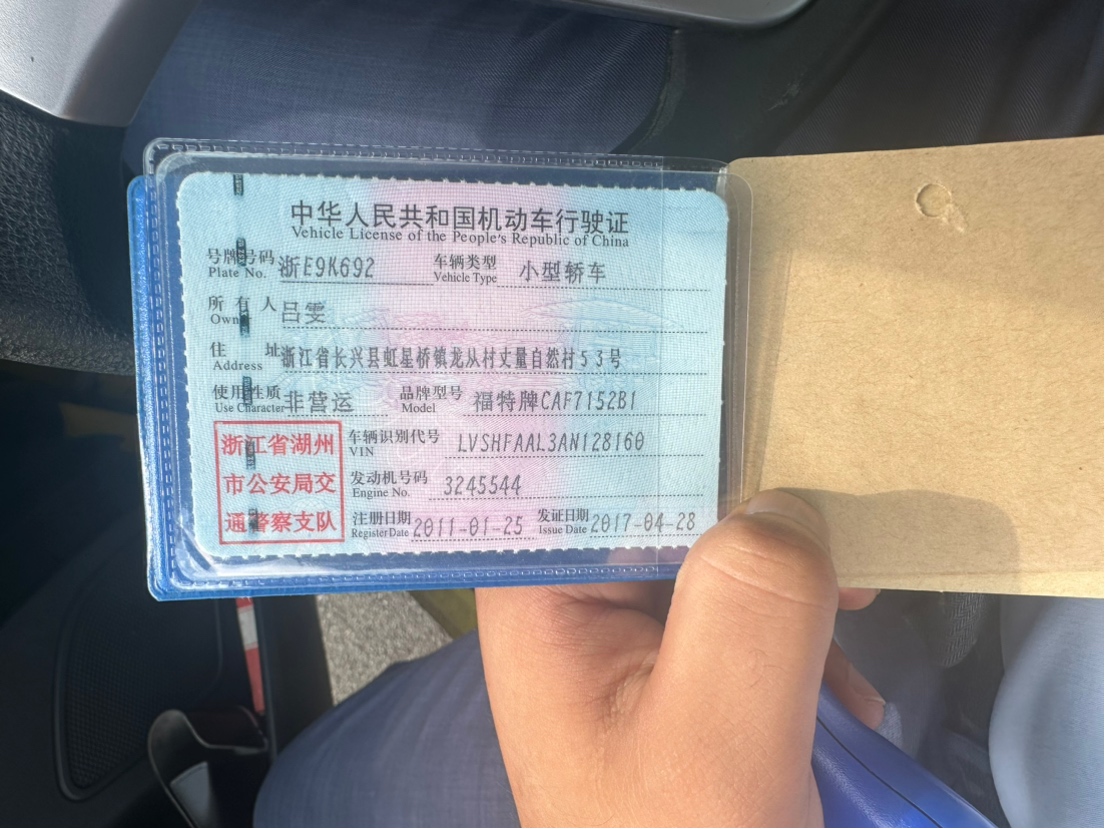 中华人民共和国机动车行驶证
Vehicle License of the People's Republic of China
号牌号码 浙E9K692 车辆类型 小型轿车
Plate No. Vehicle Type
所有人 吕雯
Owner
住址 浙江省长兴县虹星桥镇龙从村丈量自然村53号
Address
使用性质 非营运 品牌型号 福特牌CAF7152B1
Use Character Model
浙江省湖州
市公安局交
通警察支队
车辆识别代号 LVSHFAAL3AN128160
VIN
发动机号码 3245544
Engine No.
注册日期 2011-01-25 发证日期 2017-04-28
Register Date Issue Date